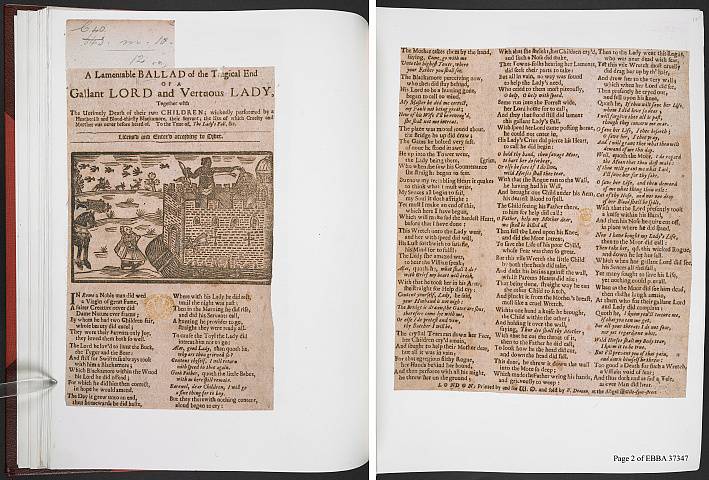 C.40.
643. m. 10.
12
A Lamentable BALLAD of the Tragical End
OF A
Gallant LORD and Vertuous LADY,
Together with
The Untimely Death of their two CHILDREN; wickedly performed by a
Heathenish and Blood-thirsty Blackamore, their Servant; the like of which Cruelty and
Murther was never before heard of. To the Tune of, The Lady's Fall, &c.
Licens'd and Enter'd according to Order.
IN Rome a Noble man did wed
a Virgin of great Fame,
A fairer Creature never did
Dame Nature ever frame:
By whom he had two Children fair,
whose beauty did excel;
They were their Parents only Joy,
they loved them both so well.
The Lord he lov'd to hunt the Buck,
the Tyger and the Boar;
And still for Swiftness always took
with him a Blackamore;
Which Blackamore within the Wood
his Lord he did offend;
For which he did him then correct,
in hope he would amend.
The Day it grew unto an end,
then homewards he did haste,
Where with his Lady he did rest,
until the night was past:
Then in the Morning he did rise,
and did his Servants call,
A hunting he provides to go,
straight they were ready all.
To cause the Toyl the Lady did
intreat him not to go:
Alas, good Lady, then quoth he,
why art thou grieved so?
Content thyself, I will return
with speed to thee again.
Good Father, quoth the little Babes,
with us here still remain.
Farewel, dear Children, I will go
a fine thing for to buy.
But they therewith nothing content,
aloud began to cry:
The Mother takes them by the hand,
saying, Come, go with me
Unto the highest Tower, where
your Father you shall see.
The Blackamore perceiving now,
who then did stay behind,
His Lord to be a hunting gone,
began to call to mind,
My Master he did me correct,
my fault not being great;
Now of his Wife I'll be reveng'd
she shall not me intreat.
The place was moated round about,
the Bridge he up did draw;
The Gates he bolted very fast,
of none he stood in awe:
He up into the Tower went,
the Lady being there,
Who when she saw his Countenance grim,
she straight began to fear.
But now my trembling Heart it quakes
to think what I must write,
My Senses all begin to fail,
my Soul it doth affright:
Yet must I make an end of this,
which here I have begun,
Which will make sad the hardest Heart,
before that I have done:
This Wretch unto the Lady went,
and her with speed did will,
His Lust forthwith to satisfie,
his Mind for to fulfil:
The Lady she amazed was,
to hear the Villain speak;
Alas, quoth she, what shall I do?
with Grief my heart will break.
With that he took her in his Arms,
she straight for Help did cry:
Content yourself, Lady, he said,
your Husband is not nigh:
The Bridge is drawn, the Gates are shut,
therefore come lie with me,
Or else I do protest and vow
thy Butcher I will be.
The crystal Tears run down her Face,
her Children cry'd amain,
And sought to help their Mother dear,
but all it was in vain:
For that egregious filthy Rogue,
her Hands behind her bound,
And then perforce with all his might,
he threw her on the ground;
With that she shriekt, her Children cry'd,
and such a Noise did make,
That Towns-folks hearing her Lament,
did seek their parts to take:
But all in vain, no way was found
to help the Lady's need,
Who cried to them most piteously,
O help, O help with speed.
Some run into the Forrest wide,
her Lord home for to call;
And they that stood still did lament
this gallant Lady's fall.
With speed her Lord came posting home;
he could not enter in,
His Lady's Cries did pierce his Heart,
to call he did begin:
O hold thy hand, thou savage Moor,
to hurt her do forbear,
Or else be sure if I do live,
wild Horses shall thee tear.
With that the Rogue ran to the Wall,
he having had his Will,
And brought one Child under his Arm,
his dearest Blood to spill.
The Child seeing his Father there,
to him for help did call:
O Father, help my Mother dear,
we shall be killed all.
Then fell the Lord upon his Knee,
and did the Moor intreat,
To save the Life of his poor Child,
whose Fear was then so great.
But this vile Wretch the little Child
by both the Heels did take,
And dasht his brains against the wall,
whilst Parents Hearts did ake:
That being done, straight way he ran
the other Child to fetch,
And pluckt it from the Mother's breast,
most like a cruel Wretch.
Within one hand a knife he brought,
the Child within the other;
And holding it over the wall,
saying, Thus die shall thy Mother;
With that he cut the throat of it
then to the Father he did call,
To look how he the head did cut,
and down the head did fall.
This done, he threw it down the wall
into the Moat so deep;
Which made the Father wring his hands,
and grievously to weep:
Then to the Lady went this Rogue,
who was near dead with fear,
Yet this vile Wretch most cruelly
did drag her up by th' hair,
And drew her to the very wall;
which when her Lord did see,
Then presently he cryed out,
and fell upon his knee,
Quoth he, If thou wilt save her Life,
whom I do love so dear;
I will forgive thee all is past,
though they concern me near.
O save her Life, I thee beseech;
O save her, I thee pray,
And I will grant thee what thou wilt
demand of me this day.
Well, quoth the Moor, I do regard
the Moan that thou dost make:
If thou wilt grant me what I ask,
I'll save her for thy sake.
O save her Life, and then demand
of me what thing thou wilt:
Cut off thy Nose, and not one drop
of her Blood shall be spilt.
With that the Lord presently took
a knife within his Hand,
And then his Nose he quite cut off,
in place where he did stand.
Now I have bought my Lady's Life,
then to the Moor did call:
Then take her, qd. this wicked Rogue,
and down he let her fall.
Which when her gallant Lord did see,
his Senses all did fail;
Yet many sought to save his Life,
yet nothing could prevail.
When as the Moor did see him dead,
then did he laugh amain,
At them who for their gallant Lord
and Lady did complain:
Quoth he, I know you'll torture me,
if that you can me get,
But all your threats I do not fear,
nor yet regard one whit.
Wild Horses shall my Body tear,
I know it to be true,
But I'll prevent you of that pain,
and down himself he threw:
Too good a Death for such a Wretch,
a Villain void of fear;
And thus doth end as sad a Tale,
as ever Man did hear.
LONDON: Printed by and for W. O. and sold by
Page 2 of EBBA 37347